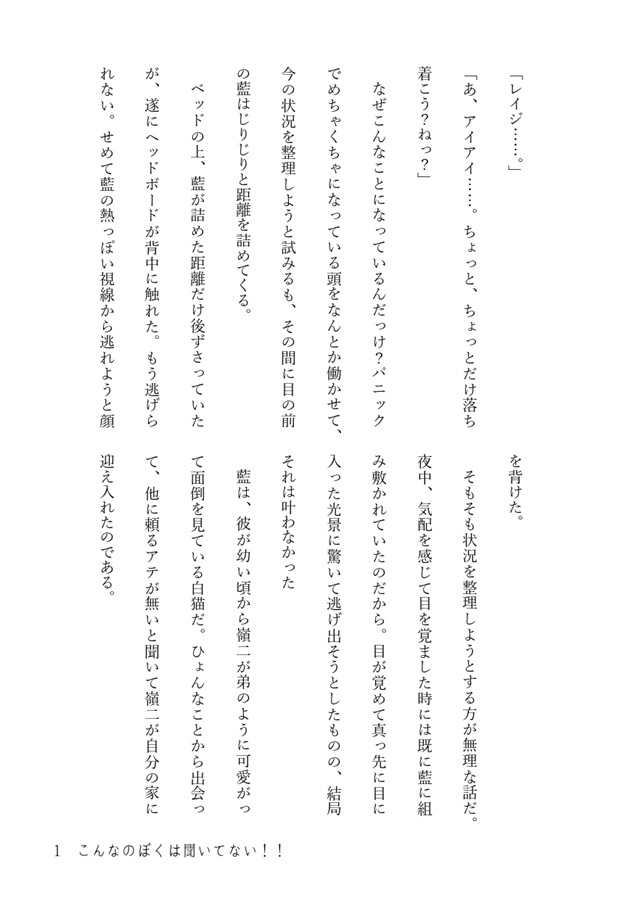 「レイジ……。」
「あ、アイアイ……。ちょっと、ちょっとだけ落ち
着こう？ねっ？」
なぜこんなことになっているんだっけ？パニック
でめちゃくちゃになっている頭をなんとか働かせて、
今の状況を整理しようと試みるも、その間に目の前
の藍はじりじりと距離を詰めてくる。
ベッドの上、藍が詰めた距離だけ後ずさっていた
が、遂にヘッドボードが背中に触れた。もう逃げら
れない。せめて藍の熱っぽい視線から逃れようと顔
を背けた。
そもそも状況を整理しようとする方が無理な話だ。
夜中、気配を感じて目を覚ました時には既に藍に組
み敷かれていたのだから。目が覚めて真っ先に目に
入った光景に驚いて逃げ出そうとしたものの、結局
それは叶わなかった
藍は、彼が幼い頃から嶺二が弟のように可愛がっ
て面倒を見ている白猫だ。ひょんなことから出会っ
て、他に頼るアテが無いと聞いて嶺二が自分の家に
迎え入れたのである。
1 こんなのぼくは聞いてない！！